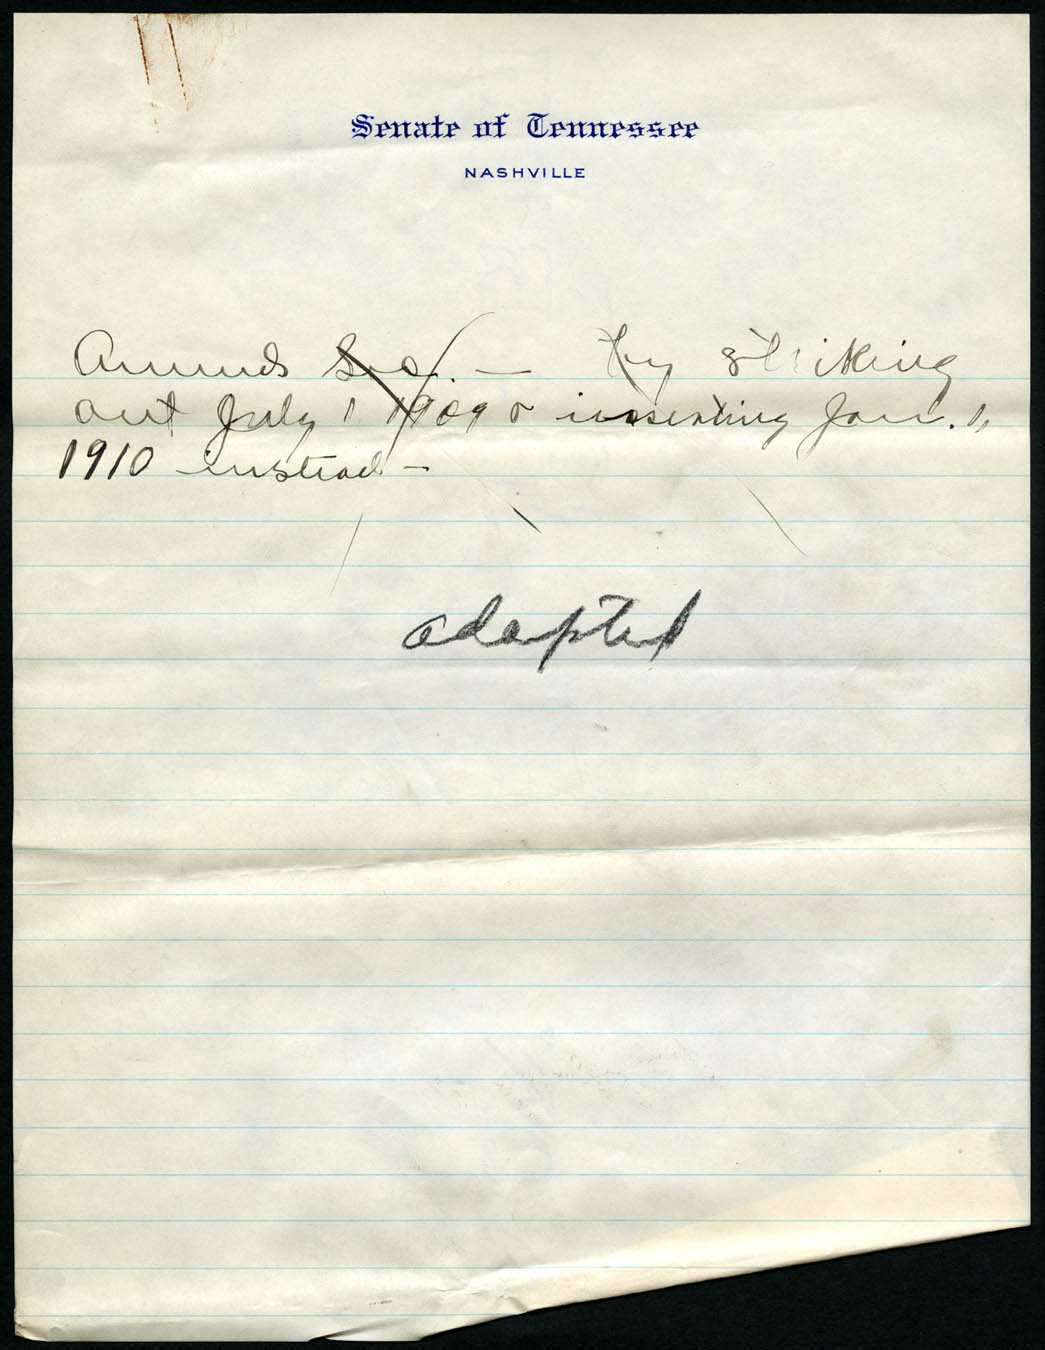 Senate of Tennessee
NASHVILLE
Amends Sec. — by striking
out July 1 1909 & inserting Jan. 1,
1910 instead —
adopted